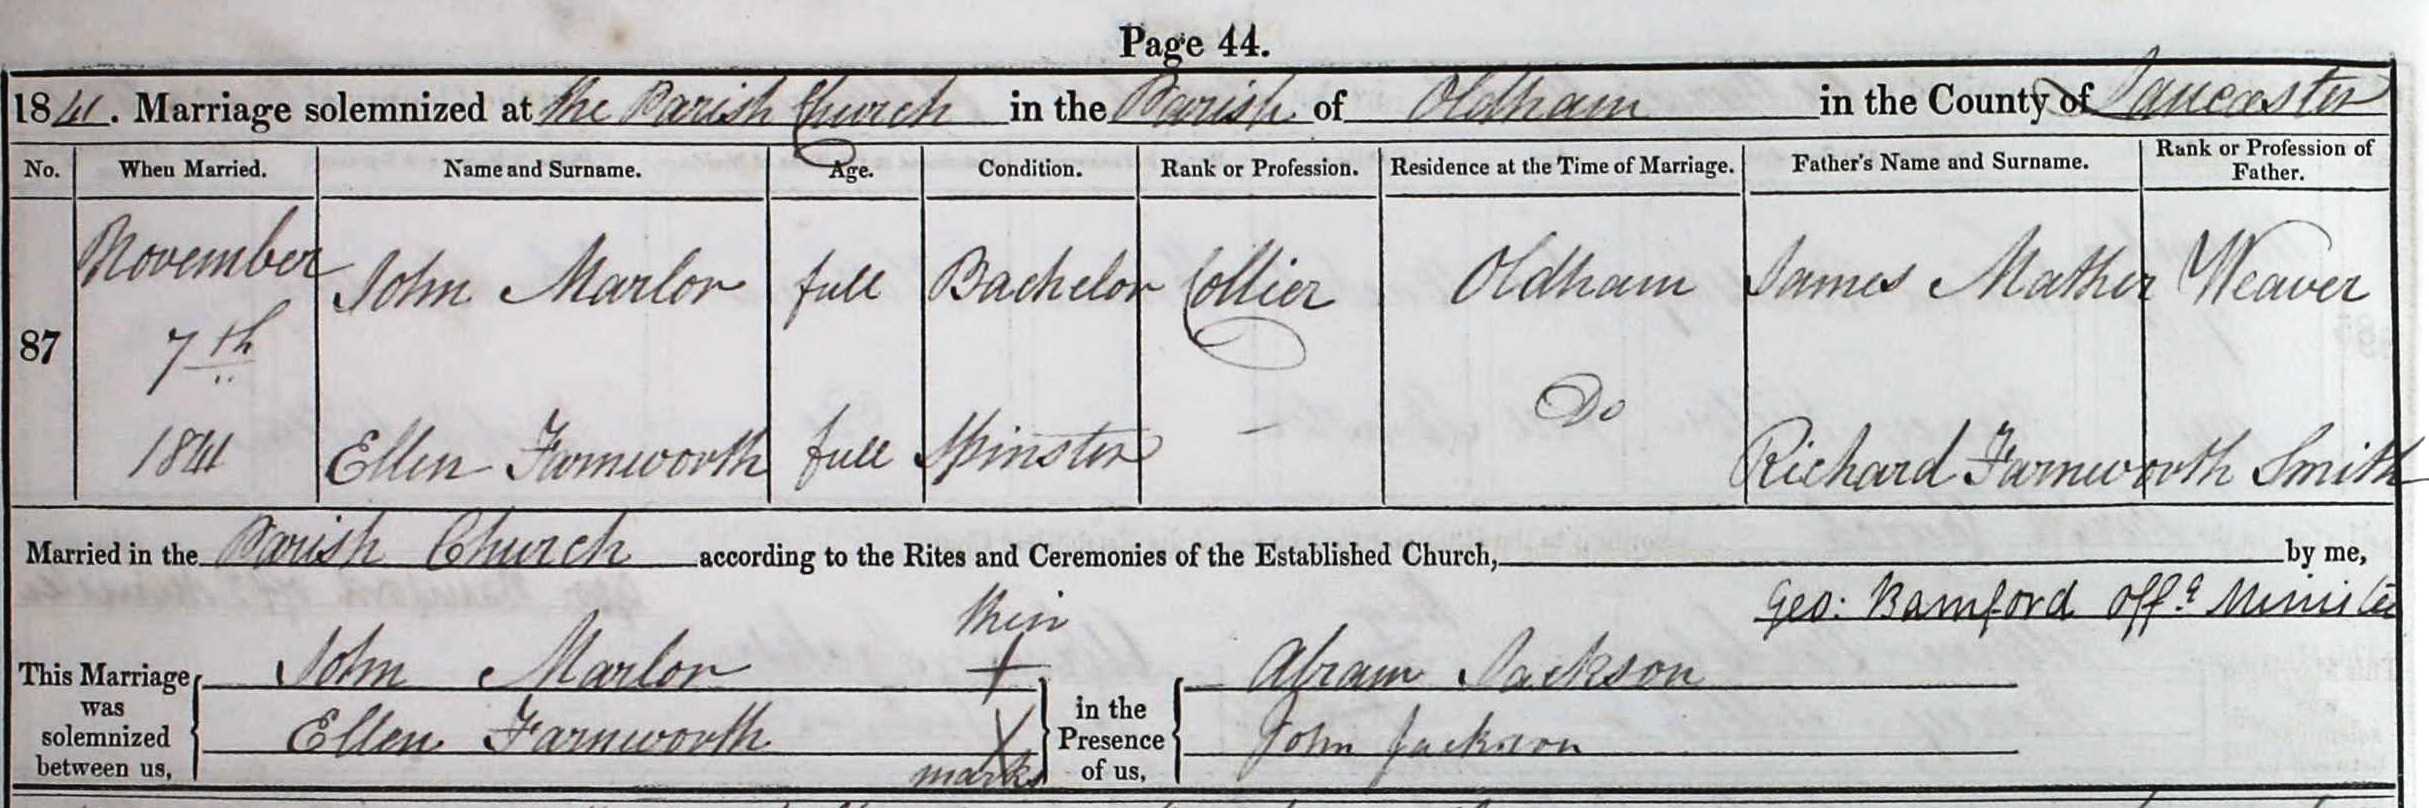 Page 44.
1841. Marriage solemnized at the Parish Church in the Parish of Oldham in the County of Lancaster
No. When Married. Name and Surname. Age. Condition. Rank or Profession. Residence at the Time of Marriage. Father's Name and Surname. Rank or Profession of Father.
November John Marlor full Bachelor Collier Oldham James Mather Weaver
87 7th
Do
1841 Ellen Farnworth full Spinster – Richard Farnworth Smith
Married in the Parish Church according to the Rites and Ceremonies of the Established Church, by me,
Geo: Bamford Offg Minister
their
This Marriage John Marlor + Abram Jackson
was in the
solemnized Ellen Farnworth X Presence John Jackson
between us, marks of us,